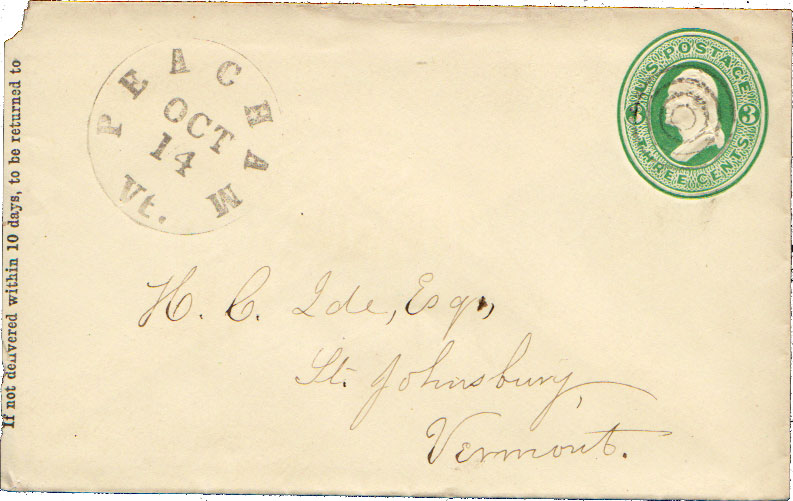 If not delivered within 10 days, to be returned to
PEACHAM
OCT
14
Vt.
U.S. POSTAGE
3 3
THREE CENTS
H. C. Ide, Esq.,
St. Johnsbury,
Vermont.